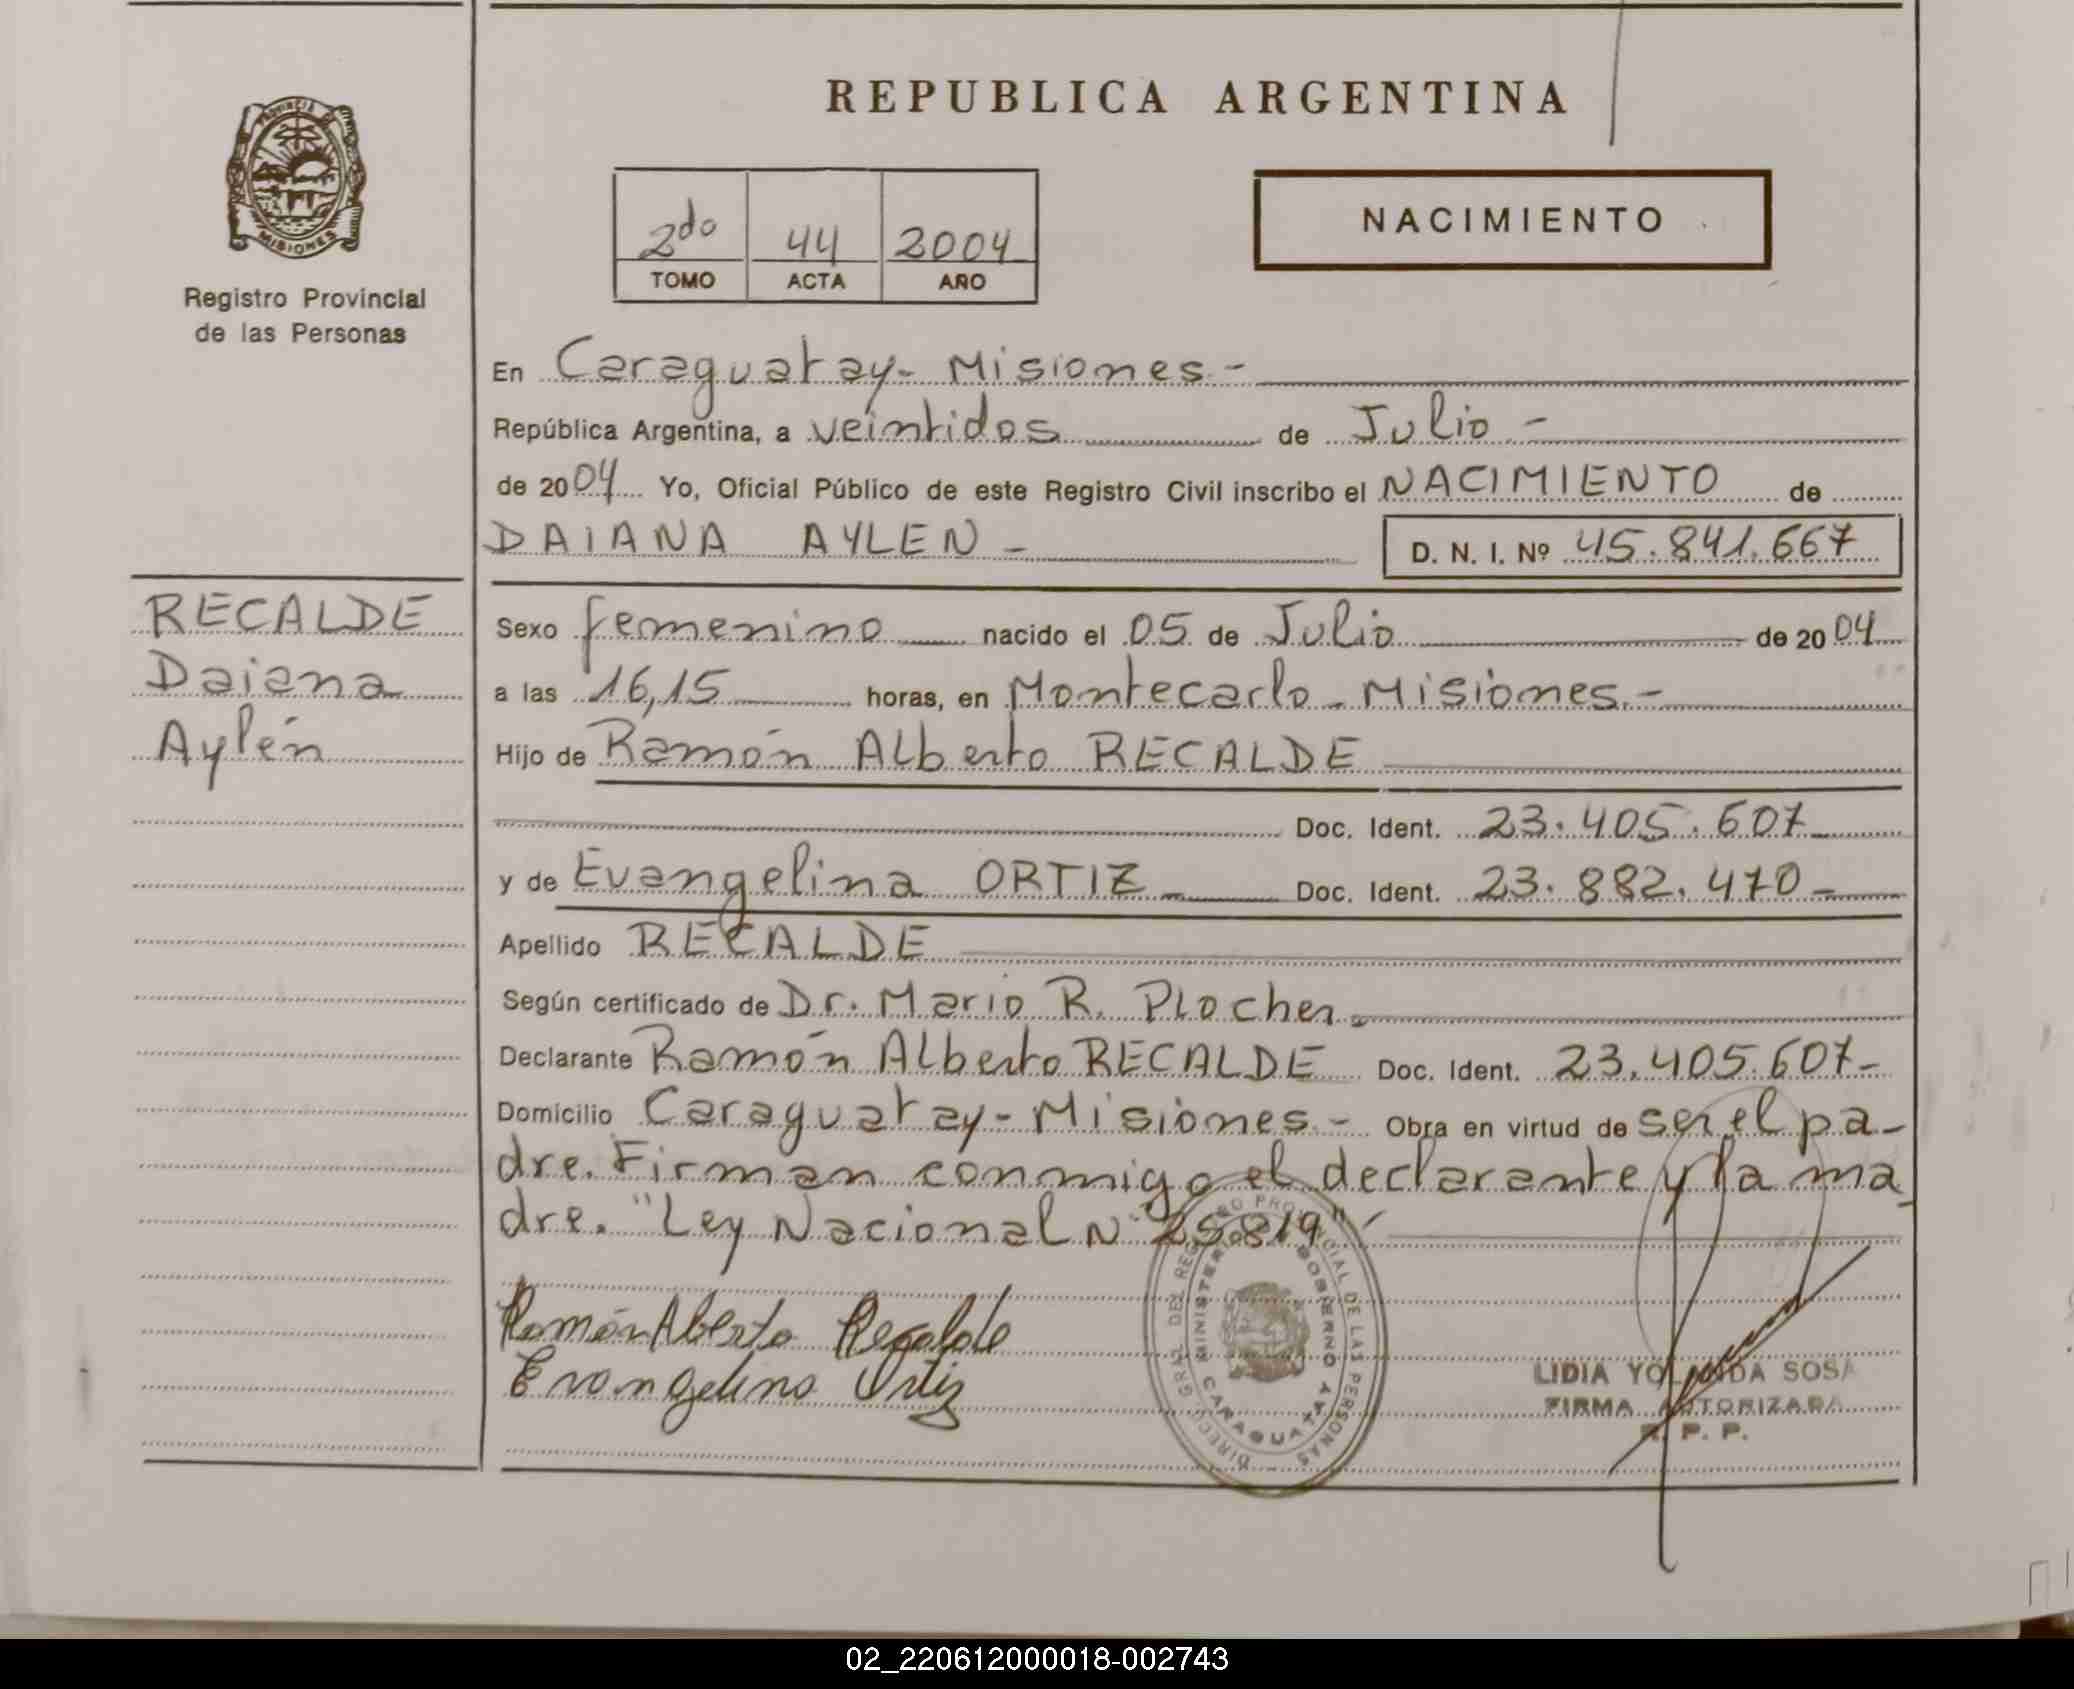 REPUBLICA ARGENTINA
PROVINCIA DE
MISIONES
Registro Provincial
de las Personas
2do 44 2004
TOMO ACTA AÑO
NACIMIENTO
En Caraguatay- Misiones -
República Argentina, a veintidos de Julio -
de 2004 Yo, Oficial Público de este Registro Civil inscribo el NACIMIENTO de
DAIANA AYLEN - D. N. I. Nº 45.841.667
RECALDE
Daiana
Aylén
Sexo femenino nacido el 05 de Julio de 2004
a las 16,15 horas, en Montecarlo - Misiones.-
Hijo de Ramón Alberto RECALDE
Doc. Ident. 23.405.607-
y de Evangelina ORTIZ - Doc. Ident. 23.882.470-
Apellido RECALDE
Según certificado de Dr. Mario R. Plocher.
Declarante Ramón Alberto RECALDE Doc. Ident. 23.405.607-
Domicilio Caraguatay-Misiones.- Obra en virtud de ser el pa-
dre. Firman conmigo el declarante y la ma-
dre. "Ley Nacional N° 25.819"-
Ramón Alberto Recalde
Evangelina Ortiz
DIRECC. GRAL. DEL REGISTRO PROVINCIAL DE LAS PERSONAS
MINISTERIO DE GOBIERNO
CARAGUATAY
LIDIA YOLANDA SOSA
FIRMA AUTORIZADA
R. P. P.
02_220612000018-002743